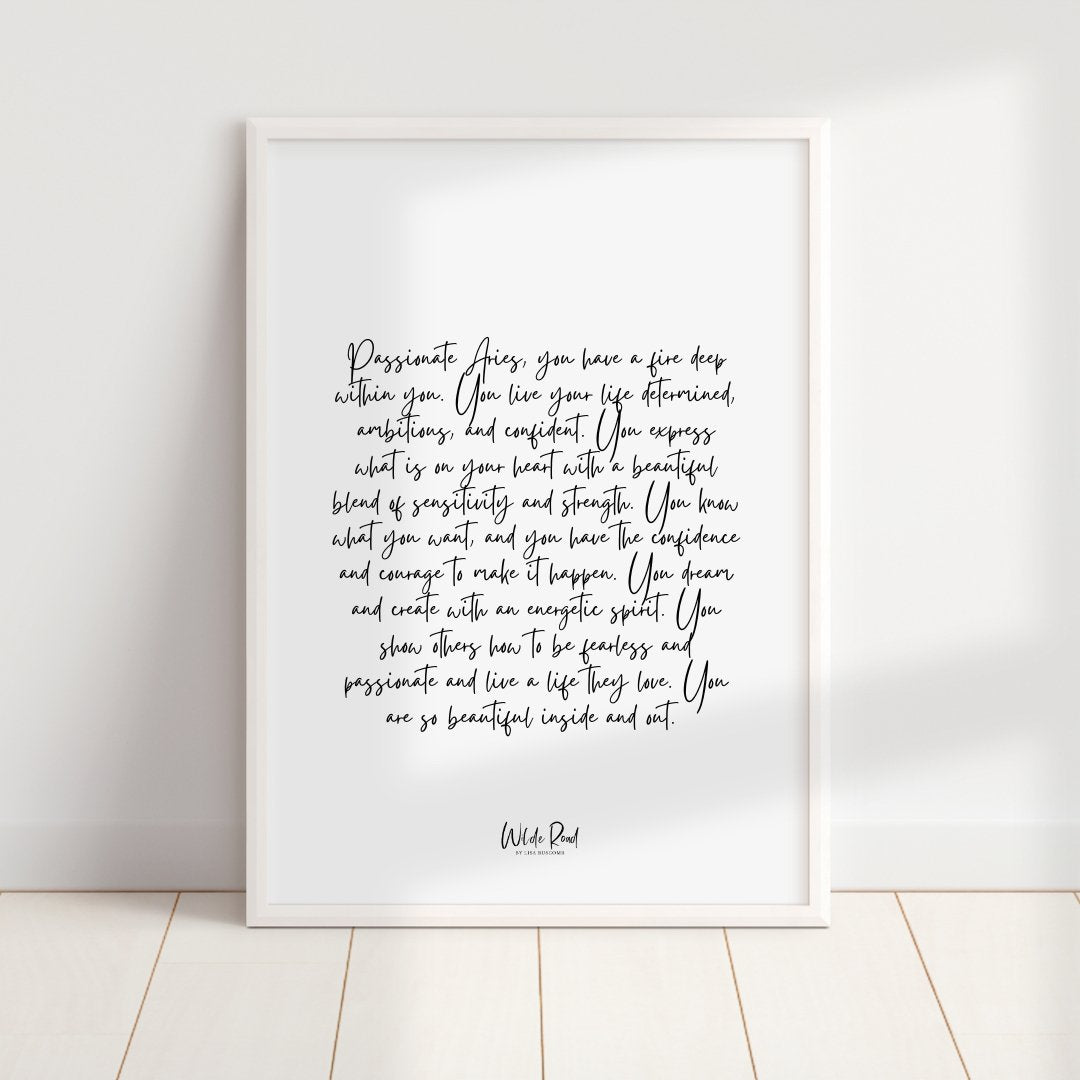 Passionate Aries, you have a fire deep
within you. You live your life determined,
ambitious, and confident. You express
what is on your heart with a beautiful
blend of sensitivity and strength. You know
what you want, and you have the confidence
and courage to make it happen. You dream
and create with an energetic spirit. You
show others how to be fearless and
passionate and live a life they love. You
are so beautiful inside and out.
Wilde Road
BY LISA BUSCOMB